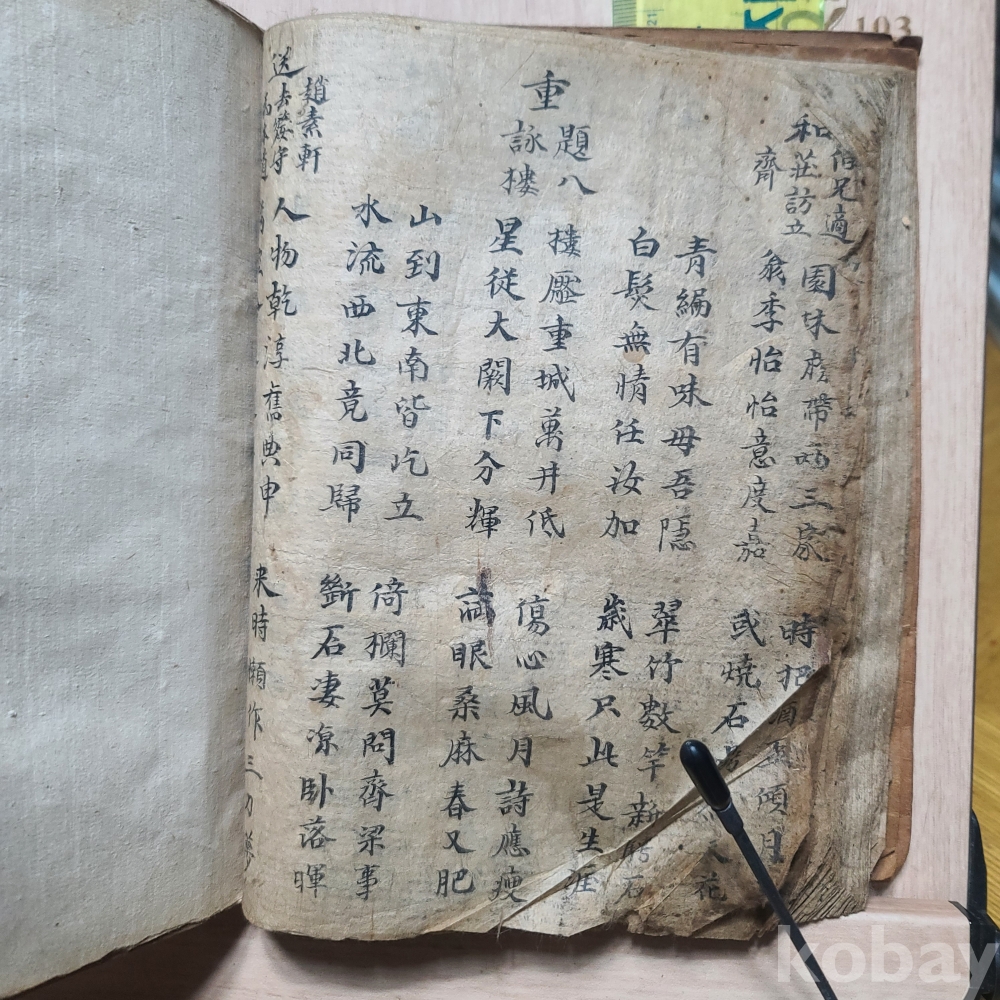 伯兄適
和莊訪立
齊
園林
時把
翁季怡怡意度嘉
或燒石
花
青編有味毋吾隱
翠竹數竿新
石
白髮無情任汝加
歲寒只此是生涯
重
題八
詠樓
樓壓重城萬井低
傷心風月詩應瘦
星從大闕下分輝
眼桑麻春又肥
山到東南皆屹立
倚欄莫問齊梁事
水流西北竟同歸
斷石凄涼臥落暉
趙素軒
送去婺守
人物乾淳舊典申
来時懶作三刀夢
kobay